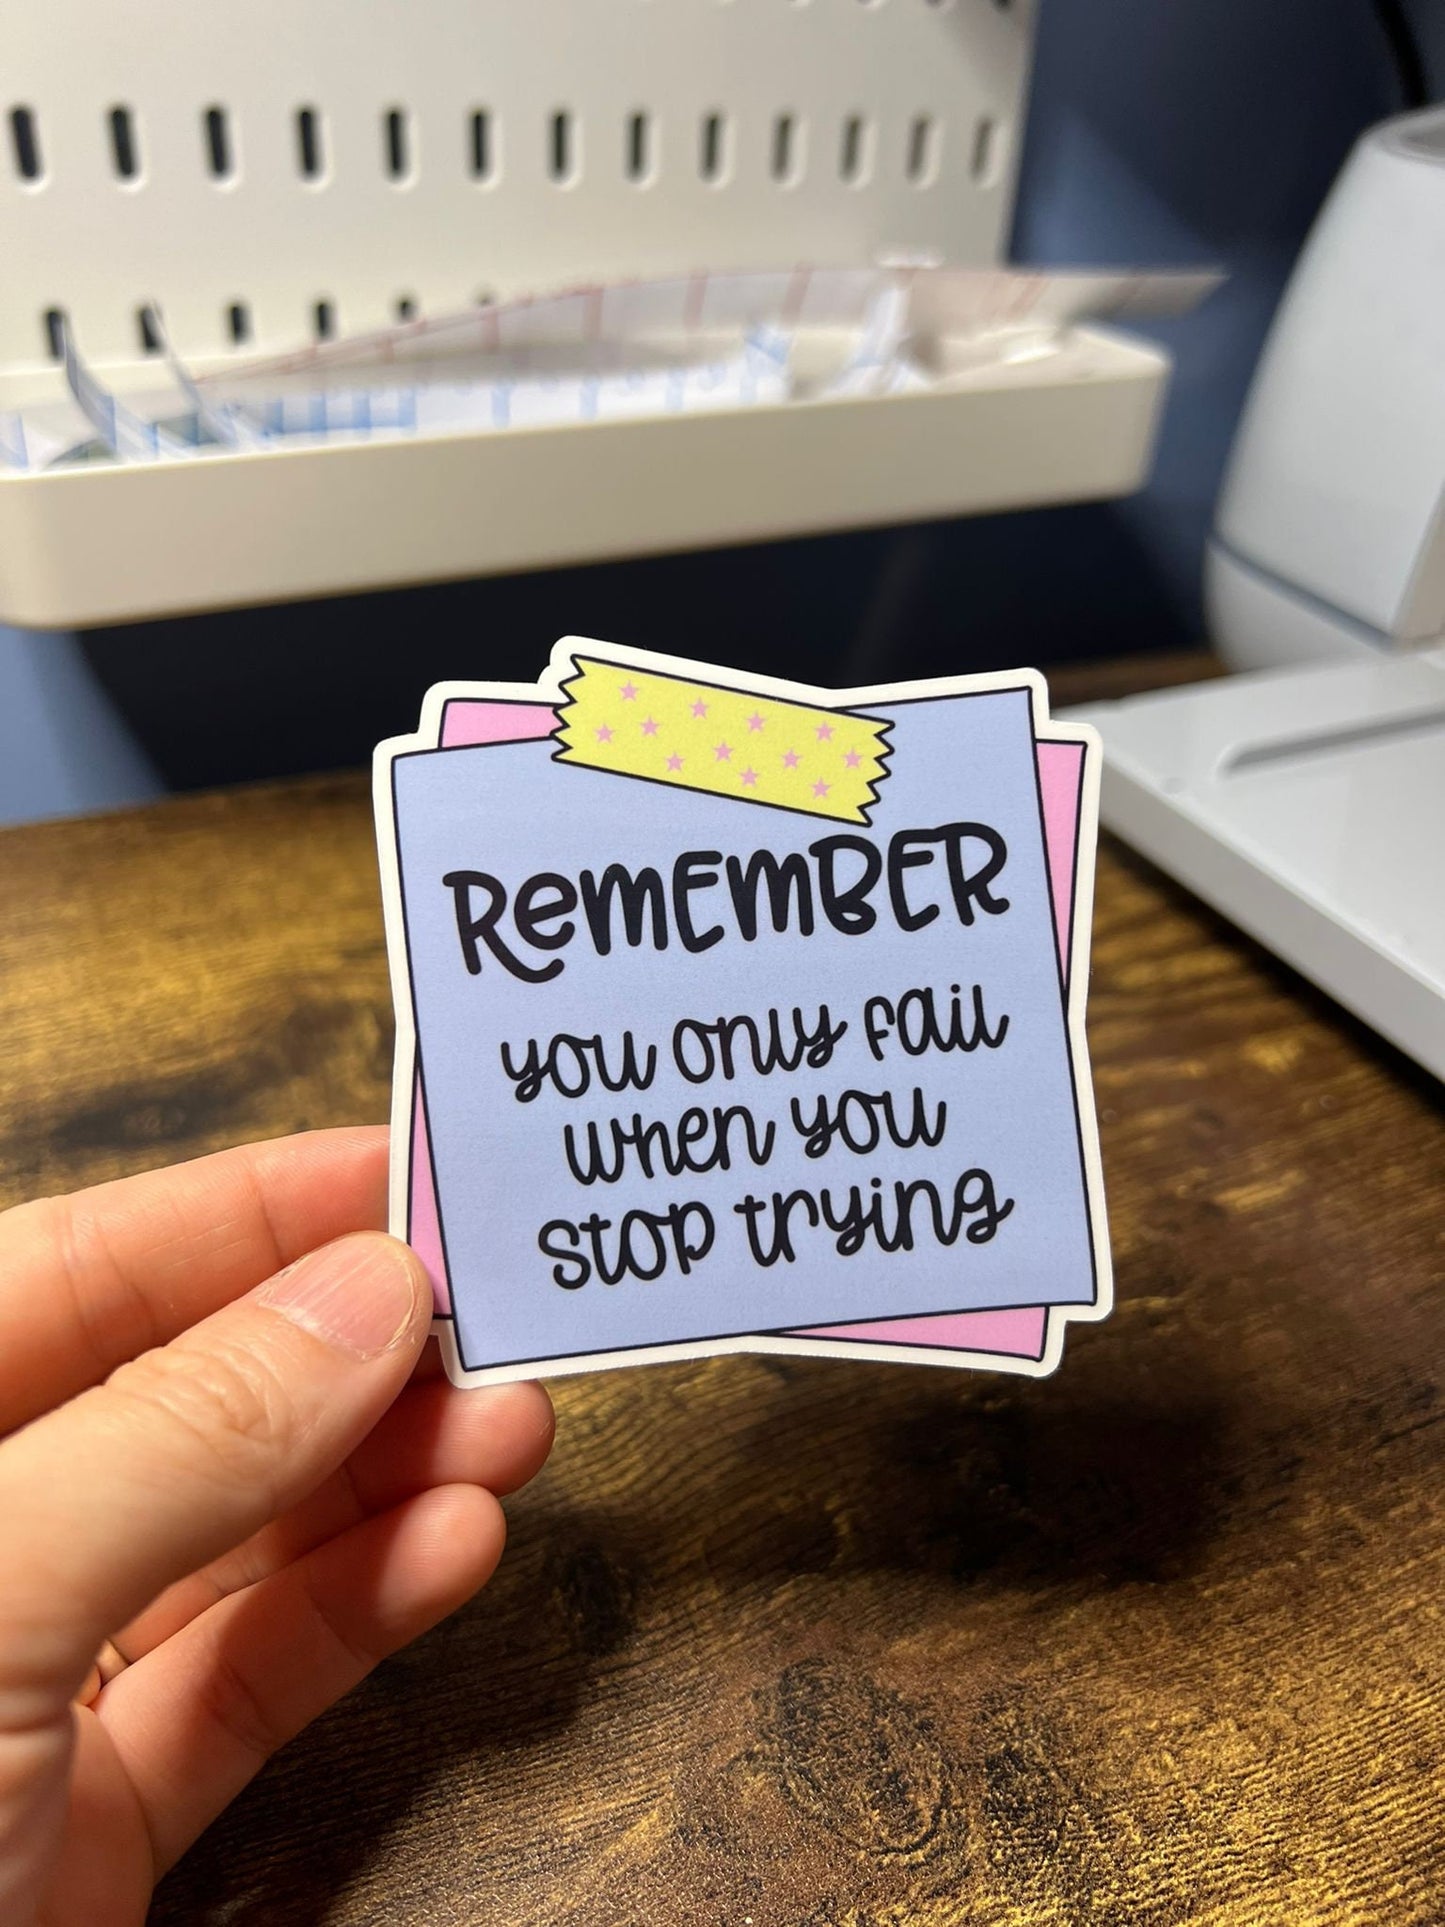 ReMEMBER
you only fail
when you
stop trying